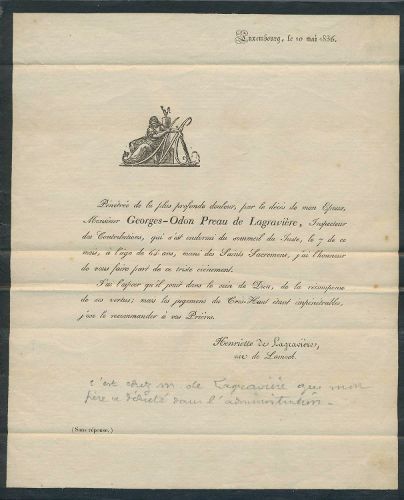 Luxembourg, le 10 mai 1836.
Pénétrée de la plus profonde douleur, par le décès de mon Epoux,
Monsieur Georges-Odon Preau de Lagravière, Inspecteur
des Contributions, qui s'est endormi du sommeil du Juste, le 7 de ce
mois, à l'age de 65 ans, muni des Saints Sacremens, j'ai l'honneur
de vous faire part de ce triste évènement.
J'ai l'espoir qu'il jouit dans le sein de Dieu, de la récompense
de ses vertus; mais les jugemens du Très-Haut étant impénétrables,
j'ose le recommander à vos Prières.
Henriette de Lagravière,
née de
c'est chez m. de Lagravière que mon
père a débuté dans l'administration.
(Sans réponse.)